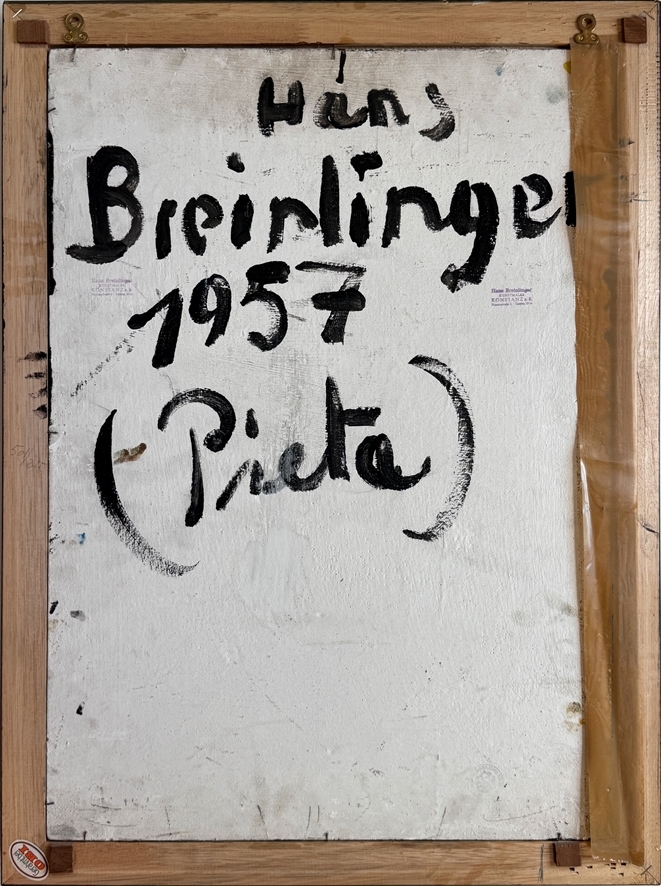 Hans
Breinlinger
1957
(Pieta)
Hans Breinlinger
KUNSTMALER
KONSTANZ a.B.
Hans Breinlinger
KUNSTMALER
KONSTANZ a.B.